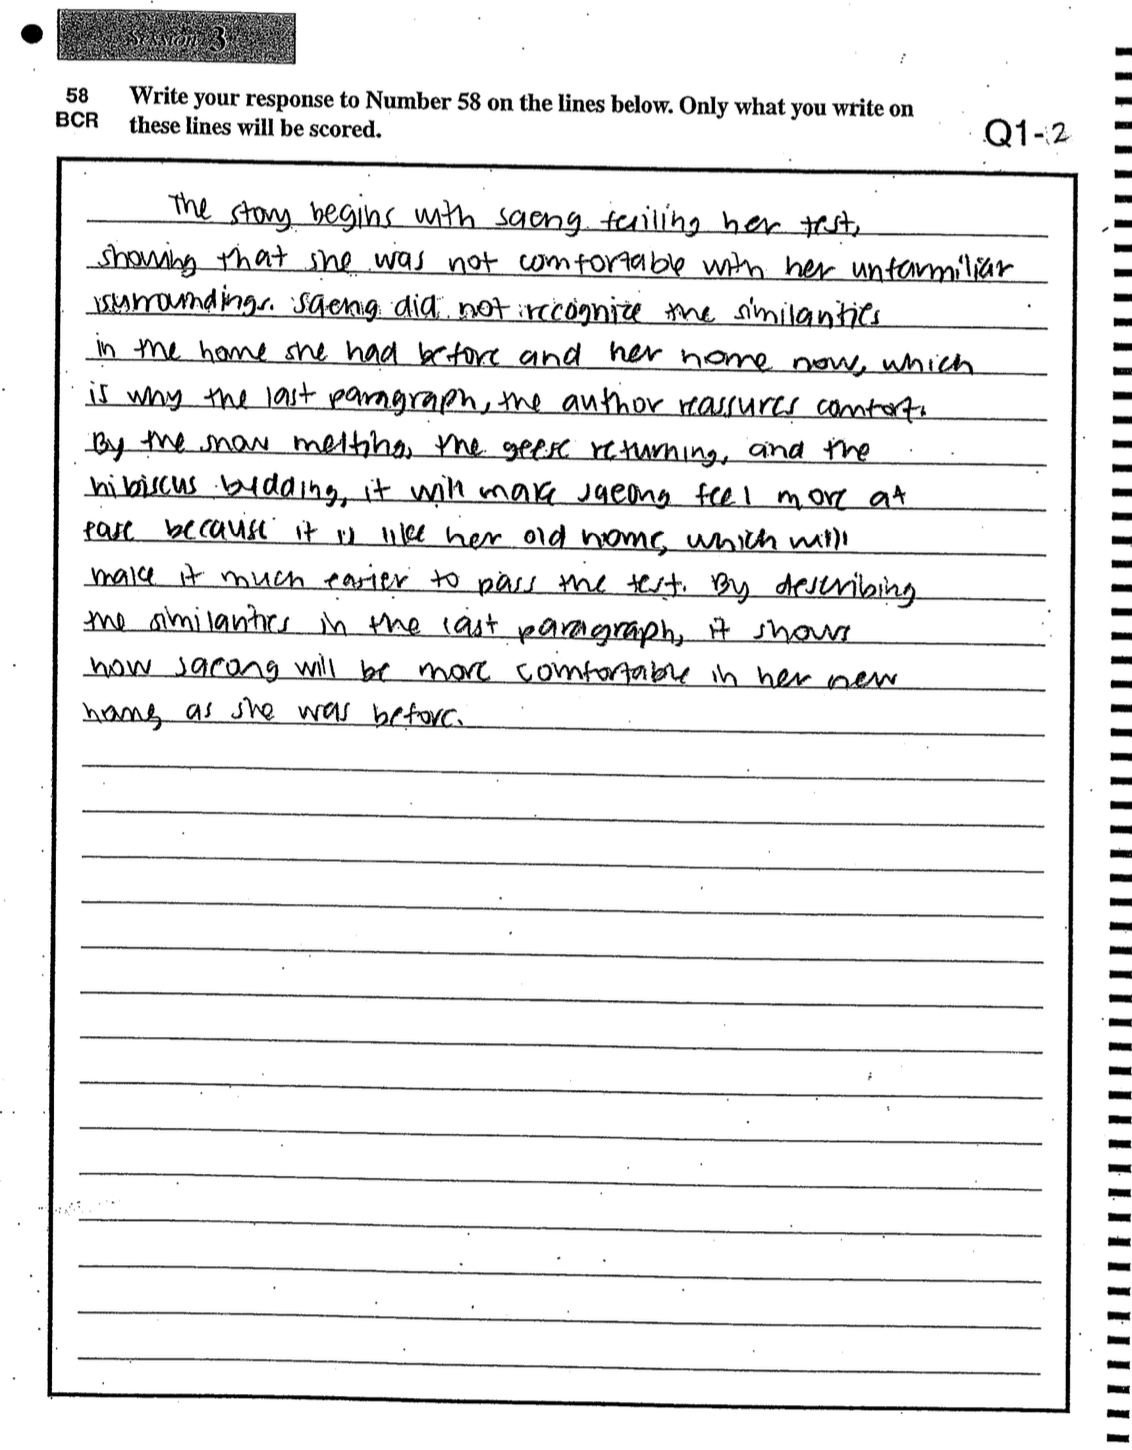 Session 3
58 Write your response to Number 58 on the lines below. Only what you write on
BCR these lines will be scored.
Q1-2
The story begins with saeng failing her test,
showing that she was not comfortable with her unfarmiliar
surroundings. Saeng did not recognize the similarities
in the home she had before and her home now, which
is why the last paragraph, the author reassures comfort.
By the snow melting, the geese returning, and the
hibiscus budding, it will make saeong feel more at
ease because it is like her old home, which will
make it much easier to pass the test. By describing
the similarities in the last paragraph, it shows
how saeong will be more comfortable in her new
home, as she was before.